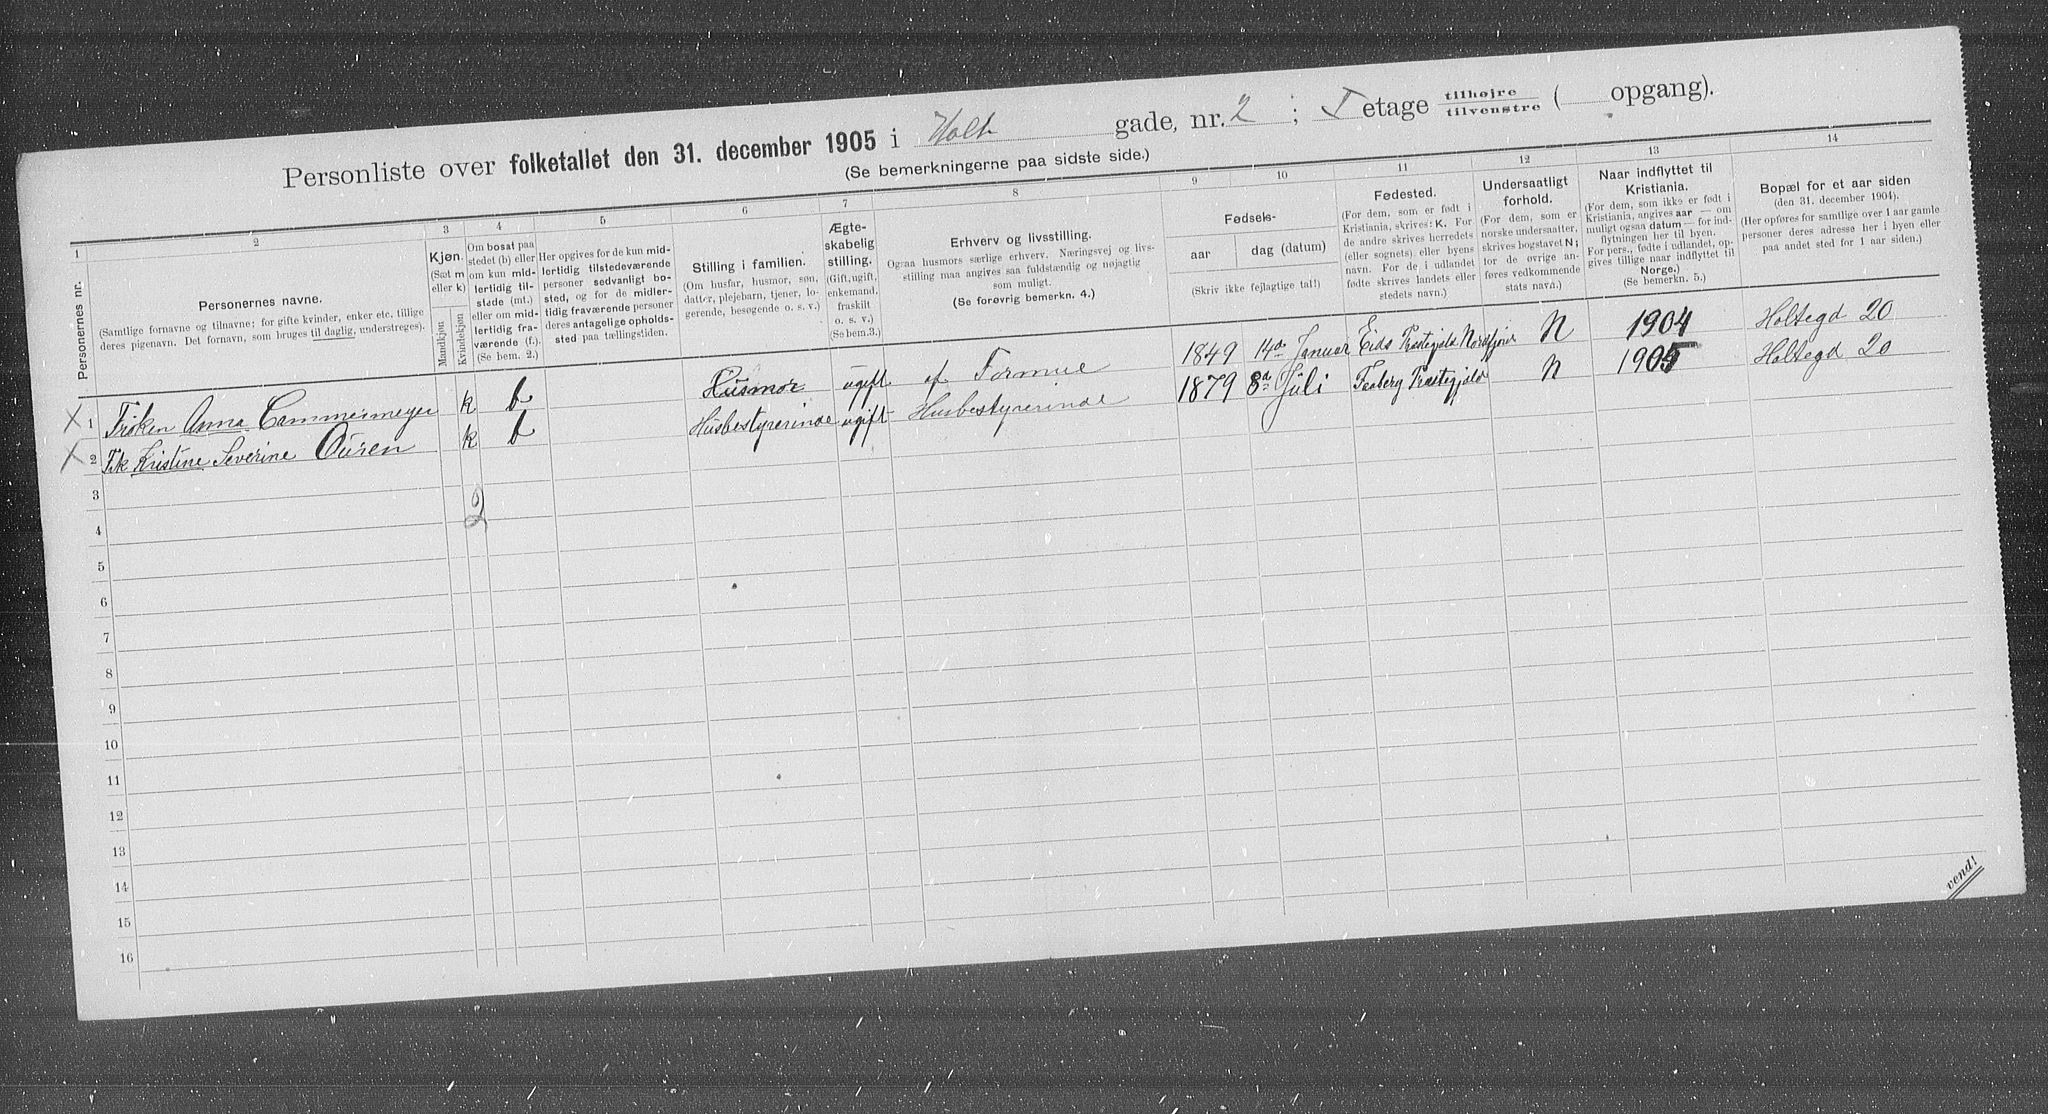 Personliste over folketallet den 31. december 1905 i Holt gade, nr. 2 ; I etage tilhøjre / tilvenstre ( opgang).
(Se bemerkningerne paa sidste side.)
1 2 3 4 5 6 7 8 9 10 11 12 13 14
Personernes nr.
Personernes navne.
(Samtlige fornavne og tilnavne; for gifte kvinder, enker etc. tillige
deres pigenavn. Det fornavn, som bruges til daglig, understreges).
Kjøn.
(Sæt m
eller k)
Mandkjøn
Kvindekjøn
Om bosat paa
stedet (b) eller
om kun mid-
lertidig til-
stede (mt.)
eller om mid-
lertidig fra-
værende (f.).
(Se bem. 2.)
Her opgives for de kun mid-
lertidig tilstedeværende
personer sedvanlig bo-
sted, og for de midler-
tidig fraværende personer
deres antagelige opholds-
sted paa tællingstiden.
Stilling i familien.
(Om husfar, husmor, søn,
datter, plejebarn, tjener, lo-
gerende, besøgende o. s. v.)
Ægte-
skabelig
stilling.
(Gift, ugift,
enkemand,
fraskilt
o. s. v.)
(Se bem.3.)
Erhverv og livsstilling.
Ogsaa husmors særlige erhverv. Næringsvej og livs-
stilling maa angives saa fuldstændig og nøjagtig
som muligt.
(Se forøvrig bemerkn. 4.)
Fødsels-
aar
dag (datum)
(Skriv ikke fejlagtige tal!)
Fødested.
(For dem, som er født i
Kristiania, skrives: K. For
de andre skrives herredets
(eller sognets) eller byens
navn. For de i udlandet
fødte skrives landets eller
stedets navn.)
Undersaatligt
forhold.
(For dem, som er
norske undersaatter,
skrives bogstavet N;
for de øvrige an-
føres vedkommende
stats navn.)
Naar indflyttet til
Kristiania.
(For dem, som ikke er født i
Kristiania, angives aar — om
muligt ogsaa datum — for ind-
flytningen her til byen.
For pers., fødte i udlandet, op-
gives tillige naar indflyttet til
Norge.)
(Se bemerkn. 5.)
Bopæl for et aar siden
(den 31. december 1904).
(Her opføres for samtlige over 1 aar gamle
personer deres adresse her i byen eller
paa andet sted for 1 aar siden.)
X 1 Frøken Anna Cammermeyer k b Husmor ugift af Formue 1849 14de Januar Eids Prestegjeld Nordfjord N 1904 Holtegd 20
X 2 Frk Kristine Severine Ouren k b Husbestyrerinde ugift Husbestyrerinde 1879 8de Juli Prestegjeld N 1905 Holtegd 20
3
2
4
5
6
7
8
9
10
11
12
13
14
15
16
vend!